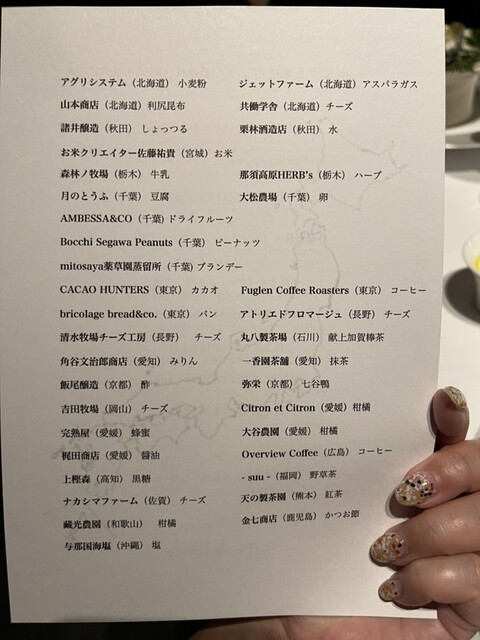 アグリシステム（北海道）小麦粉　ジェットファーム（北海道）アスパラガス
山本商店（北海道）利尻昆布　共働学舎（北海道）チーズ
諸井醸造（秋田）しょっつる　栗林酒造店（秋田）水
お米クリエイター佐藤祐貴（宮城）お米
森林ノ牧場（栃木）牛乳　那須高原HERB's（栃木）ハーブ
月のとうふ（千葉）豆腐　大松農場（千葉）卵
AMBESSA&CO（千葉）ドライフルーツ
Bocchi Segawa Peanuts（千葉）ピーナッツ
mitosaya薬草園蒸留所（千葉）ブランデー
CACAO HUNTERS（東京）カカオ　Fuglen Coffee Roasters（東京）コーヒー
bricolage bread&co.（東京）パン　アトリエドフロマージュ（長野）チーズ
清水牧場チーズ工房（長野）　チーズ　丸八製茶場（石川）献上加賀棒茶
角谷文治郎商店（愛知）みりん　一香園茶舗（愛知）抹茶
飯尾醸造（京都）酢　弥栄（京都）七谷鴨
吉田牧場（岡山）チーズ　Citron et Citron（愛媛）柑橘
完熟屋（愛媛）蜂蜜　大谷農園（愛媛）柑橘
梶田商店（愛媛）醤油　Overview Coffee（広島）コーヒー
上樫森（高知）黒糖　- suu -（福岡）野草茶
ナカシマファーム（佐賀）チーズ　天の製茶園（熊本）紅茶
蔵光農園（和歌山）　柑橘　金七商店（鹿児島）かつお節
与那国海塩（沖縄）塩